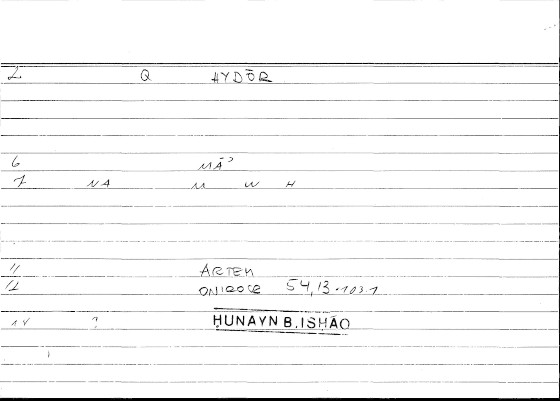 2 Q HYDŌR
6 MĀʾ
7 NA M W H
11 ARTEM
12 ONIROCR 54,13.103.1
14 ? ḤUNAYN B.ISḤĀQ